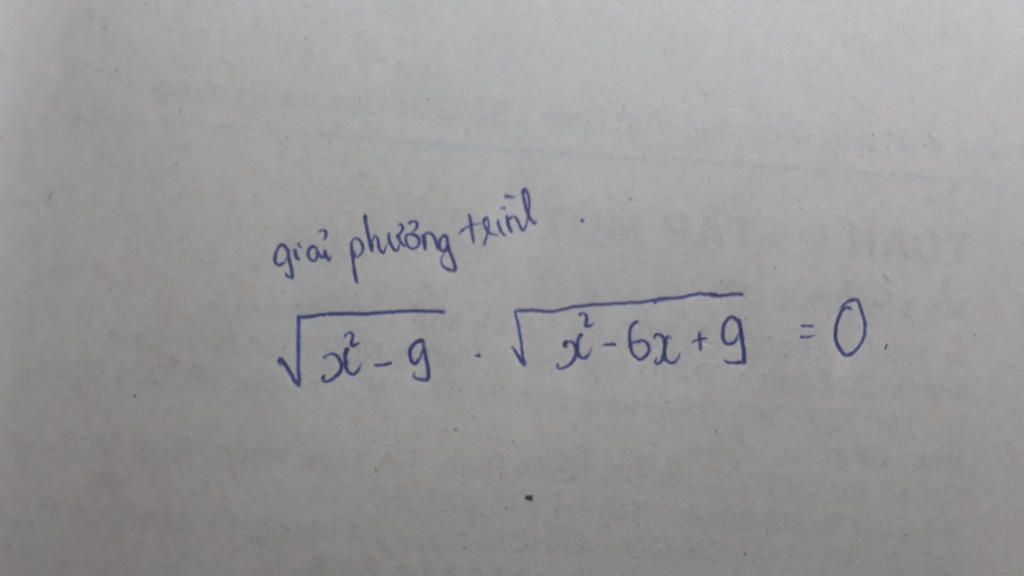 giải phương trình.
√(x² - 9) . √(x² - 6x + 9) = 0.